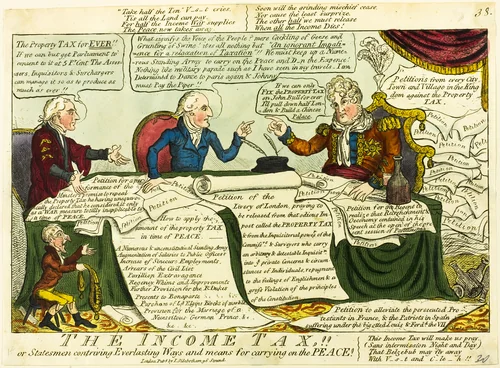 "Take half the Ten" V—s—t cries,
'Tis all the Land can pay.
For half the Income War supplies
The Peace now takes away.
Soon will the grinding mischief cease.
Nor cause the least surprize.
The other half we must release
When all the Income Dies!
38.
The Property TAX for EVER!
If we can but get Parliament to
consent to it at 5 P Cent The Asses-
sors, Inquisitors & Surchargers
can manage it so as to produce as
much as ever!!
What signifys the Voice of the People! mere Cackling of Geese and
Grunting of Swine! tis all nothing but "An ignorant Impati-
ence for a relaxation of Taxation." We must keep up a Nume-
rous Standing Army to carry on the Peace and D—n the Expence.
Nothing like military parade such as I have seen in my travels. I am
determined to Dance to paris again & Johnny
must Pay the Piper!!
If we can only
FIX the PROPERTY TAX
on John Bull for ever
I'll pull down half Lon-
don & Build a Chinese
Palace.
Petitions from every City,
Town and Village in the King-
dom against the Property
TAX.
Petition
Petition
Petition
Petition
Petition
Petition for a
formance of the
Minister's Promise to repeal
the Property Tax he having unequivo-
cally declared that he considered it only
as a WAR measure totally inapplicable to
a time of PEACE.
Petition of the
Livery of London, praying to
be released from that odious Im-
post called the PROPERTY TAX
& from the Inquisitorial power of the
Commiss.rs & Surveyors who carry
an arbitrary & detestable Inquisi-
tion of private Concerns & circum-
stances of Individuals, repugnant
to the feelings of Englishmen & a
gross Violation of the principles
of the Constitution
Petition for the Regent to
realize that Retrenchment &
Economy contained in his
Speech at the open of the pre-
sent session of Parliament
How to apply the
amount of the property TAX
in time of PEACE.
A Numerous & unconstitutional Standing Army
Augmentation of Salaries to Public Officers
Increase of Sinecure Employments
Arrears of the Civil List
Pavillion Extravagance
Regency Whims and Improvements
Further Provision for the R. Dukes
Presents to Bonaparte
Purchase of
Provision for the Marriage of a
Numeritous German Prince &c
&c. &c.
Petition to alleviate the persecuted Pro-
testants in France, & the Patriots in Spain
suffering under the bigotted Louis & Ferd.d the VII
THE INCOME TAX,!!
or Statesmen contriving Everlasting Ways and means for carrying on the PEACE!
London, Pub.d by J. Sidebotham 96 Strand
This Income Tax will make us pray
(Sans intermission Night and Day)
That Belzebub may fly away
With V—s—t and C—le—h!!